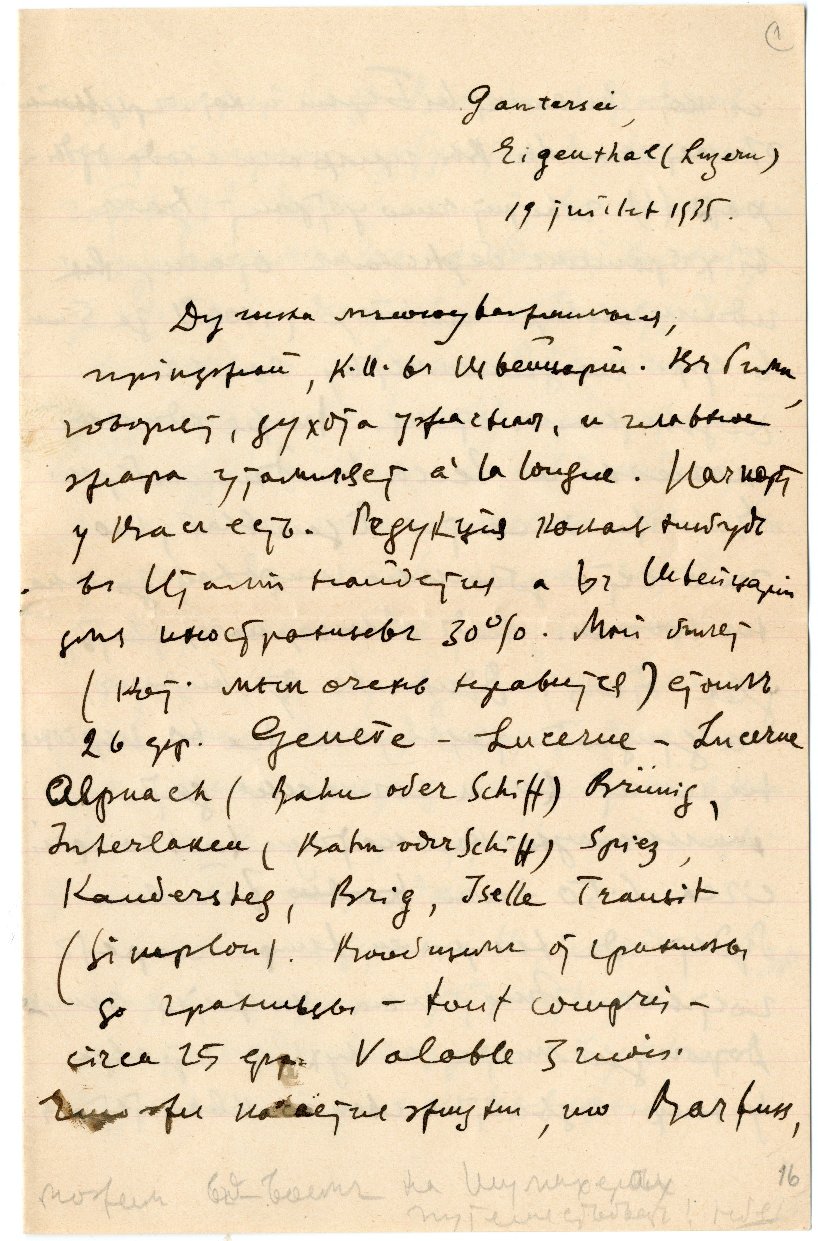 1
Gantersei,
Eigenthal (Luzern)
19 juillet 1935.
Душка многоуважаемая,
пріѣзжай, К.И. въ Швейцарію. Въ Римѣ,
говорят, духота ужасная, и главное
жара утомляет à la longue. Паспорт
у Вас есть. Редукція какая нибудь
въ Италіи найдется а въ Швейцаріи
для иностранцевъ 30%. Мой билет
(кот. мнѣ очень нравится) стоилъ
26 фр. Genève – Lucerne – Lucerne
Alpnach (Bahn oder Schiff) Brünig,
Interlaken (Bahn oder Schiff) Spiez,
Kandersteg, Brig, Iselle Transit
(Simplon). Вообщем от границы
до границы – tout compris –
circa 25 фр. Valable 3 mois.
же, что Barfuss,
можем вдвоем на
путешествовать!
16